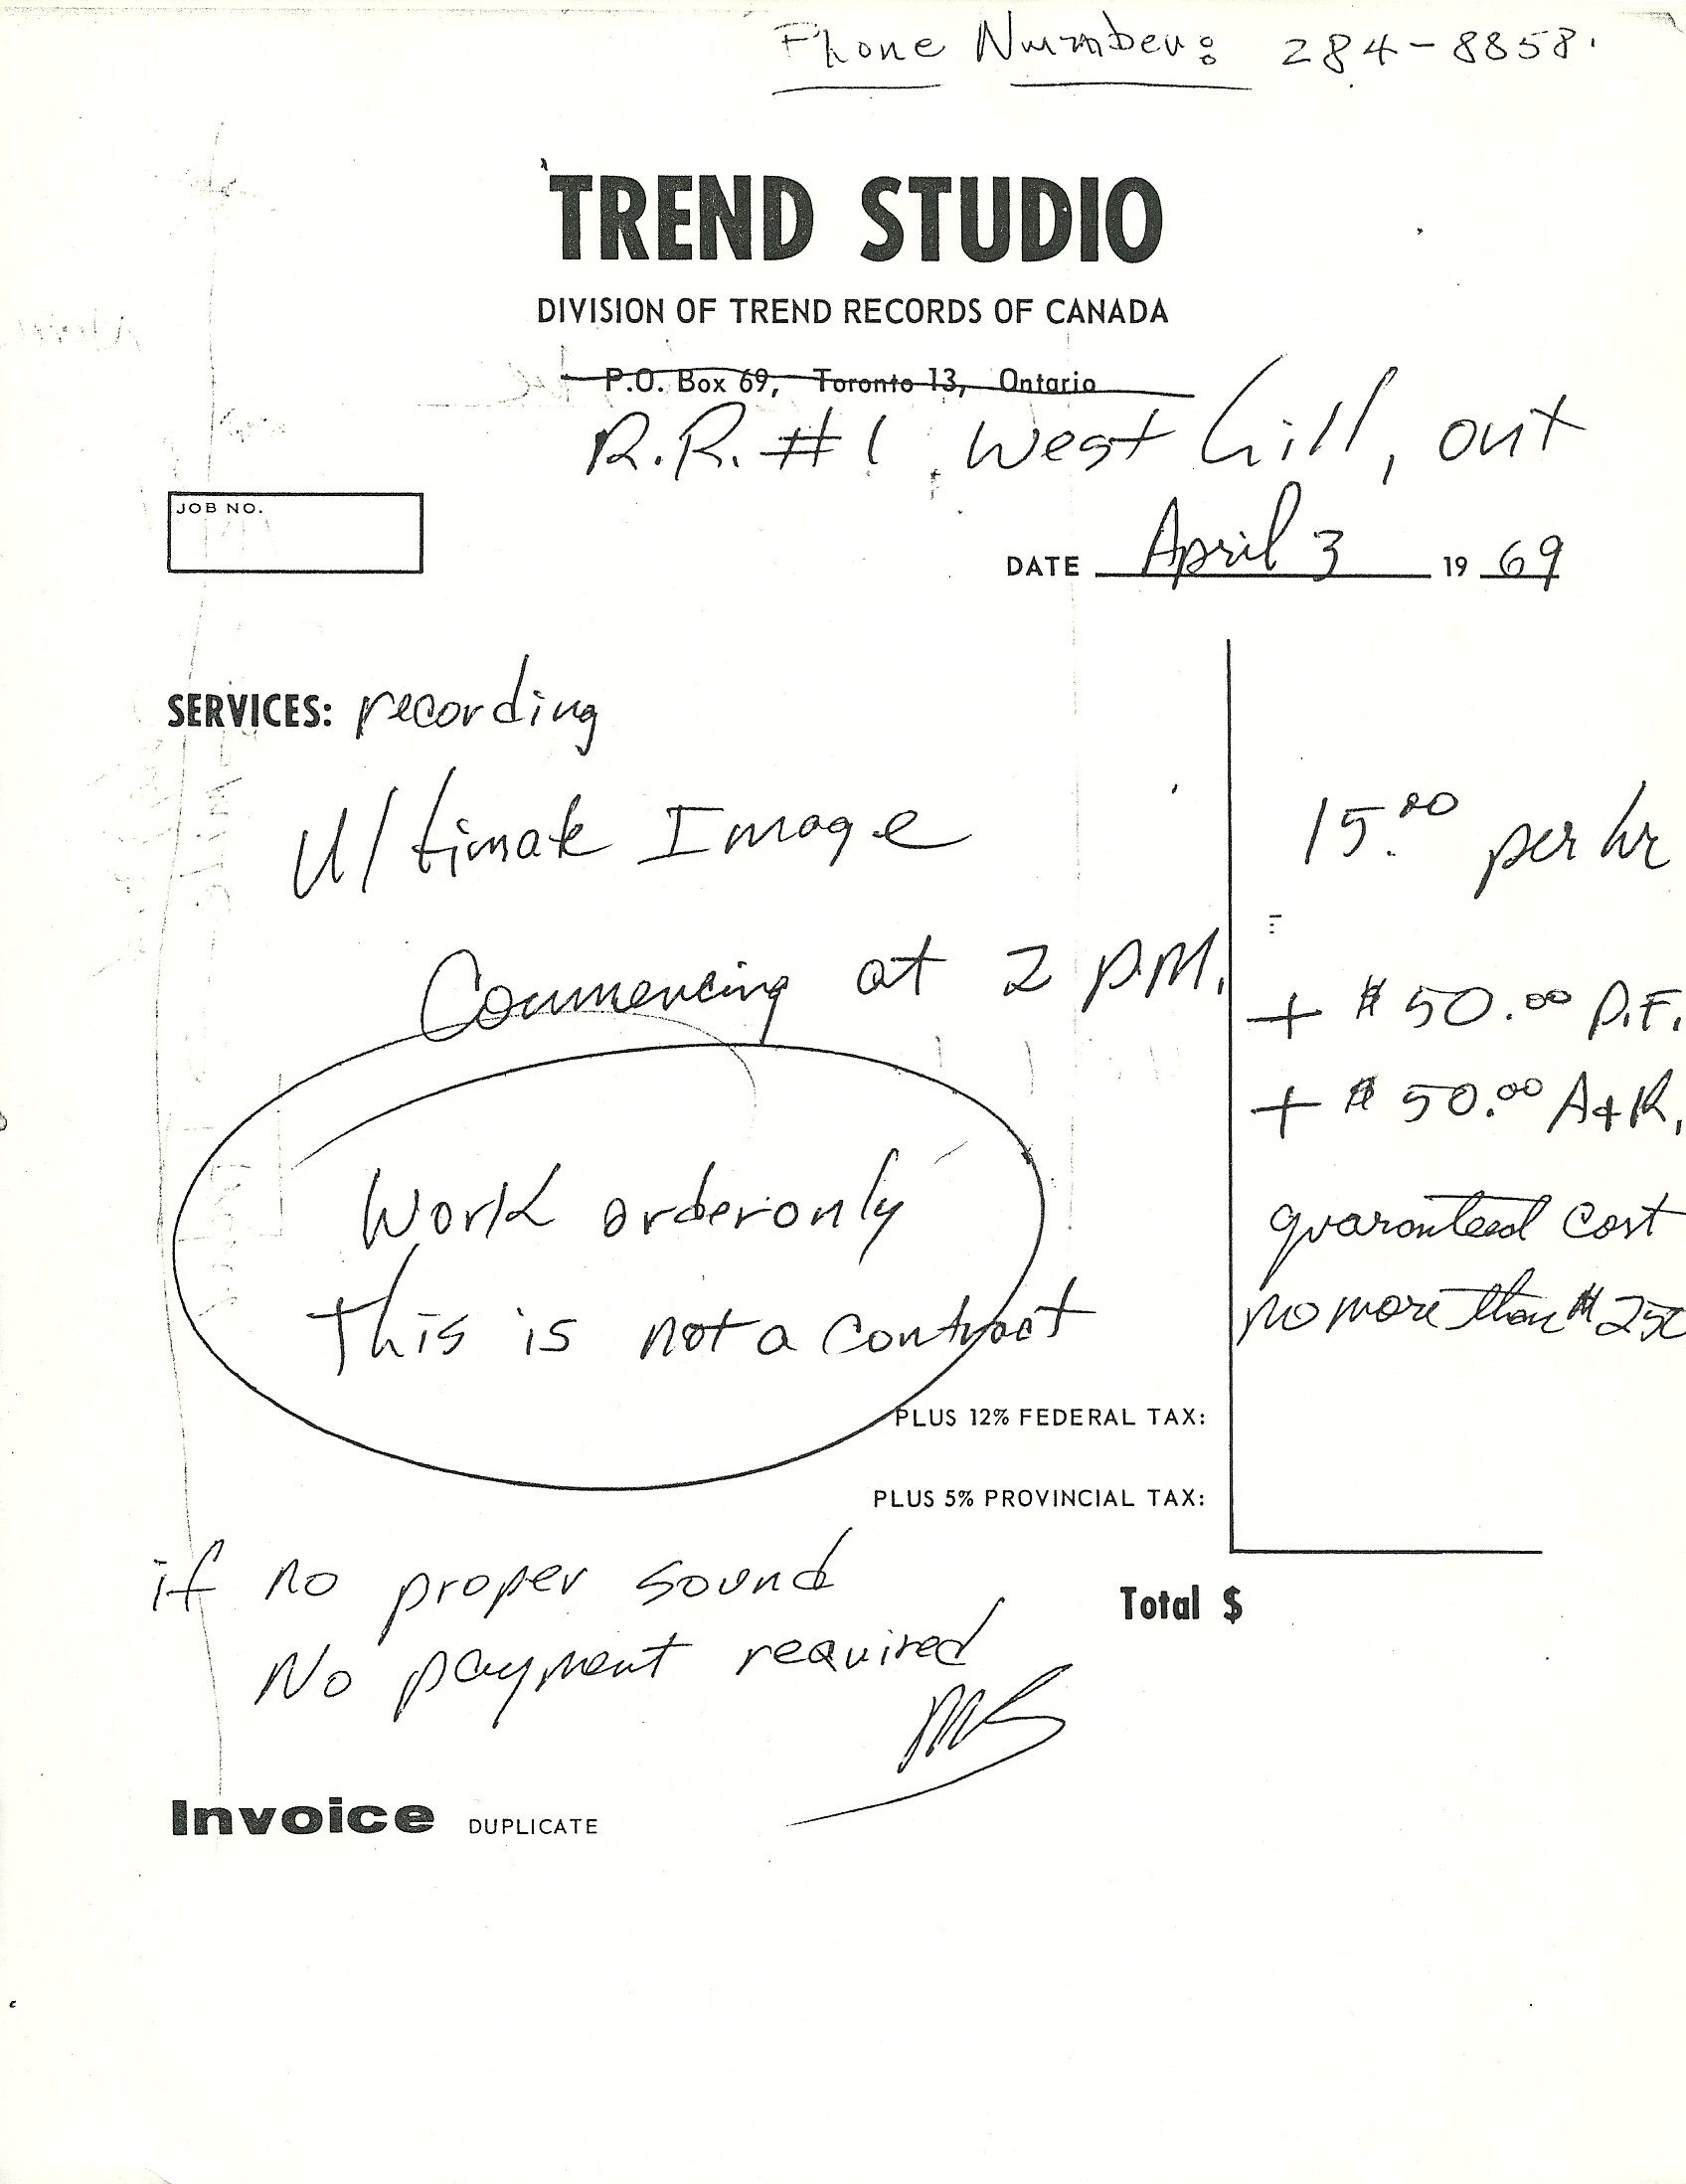 Phone Number: 284-8858.
TREND STUDIO
DIVISION OF TREND RECORDS OF CANADA
P.O. Box 69, Toronto 13, Ontario
R.R. #1, West Hill, Ont
JOB NO.
DATE April 3 19 69
SERVICES: recording
Ultimate Image
15.00 per hr
Commencing at 2 P.M.
+ $50.00 P.F.
+ $50.00 A&R.
Work order only
guaranteed cost
This is not a contract
no more than $250
PLUS 12% FEDERAL TAX:
PLUS 5% PROVINCIAL TAX:
if no proper sound
Total $
No payment required
MS
Invoice DUPLICATE